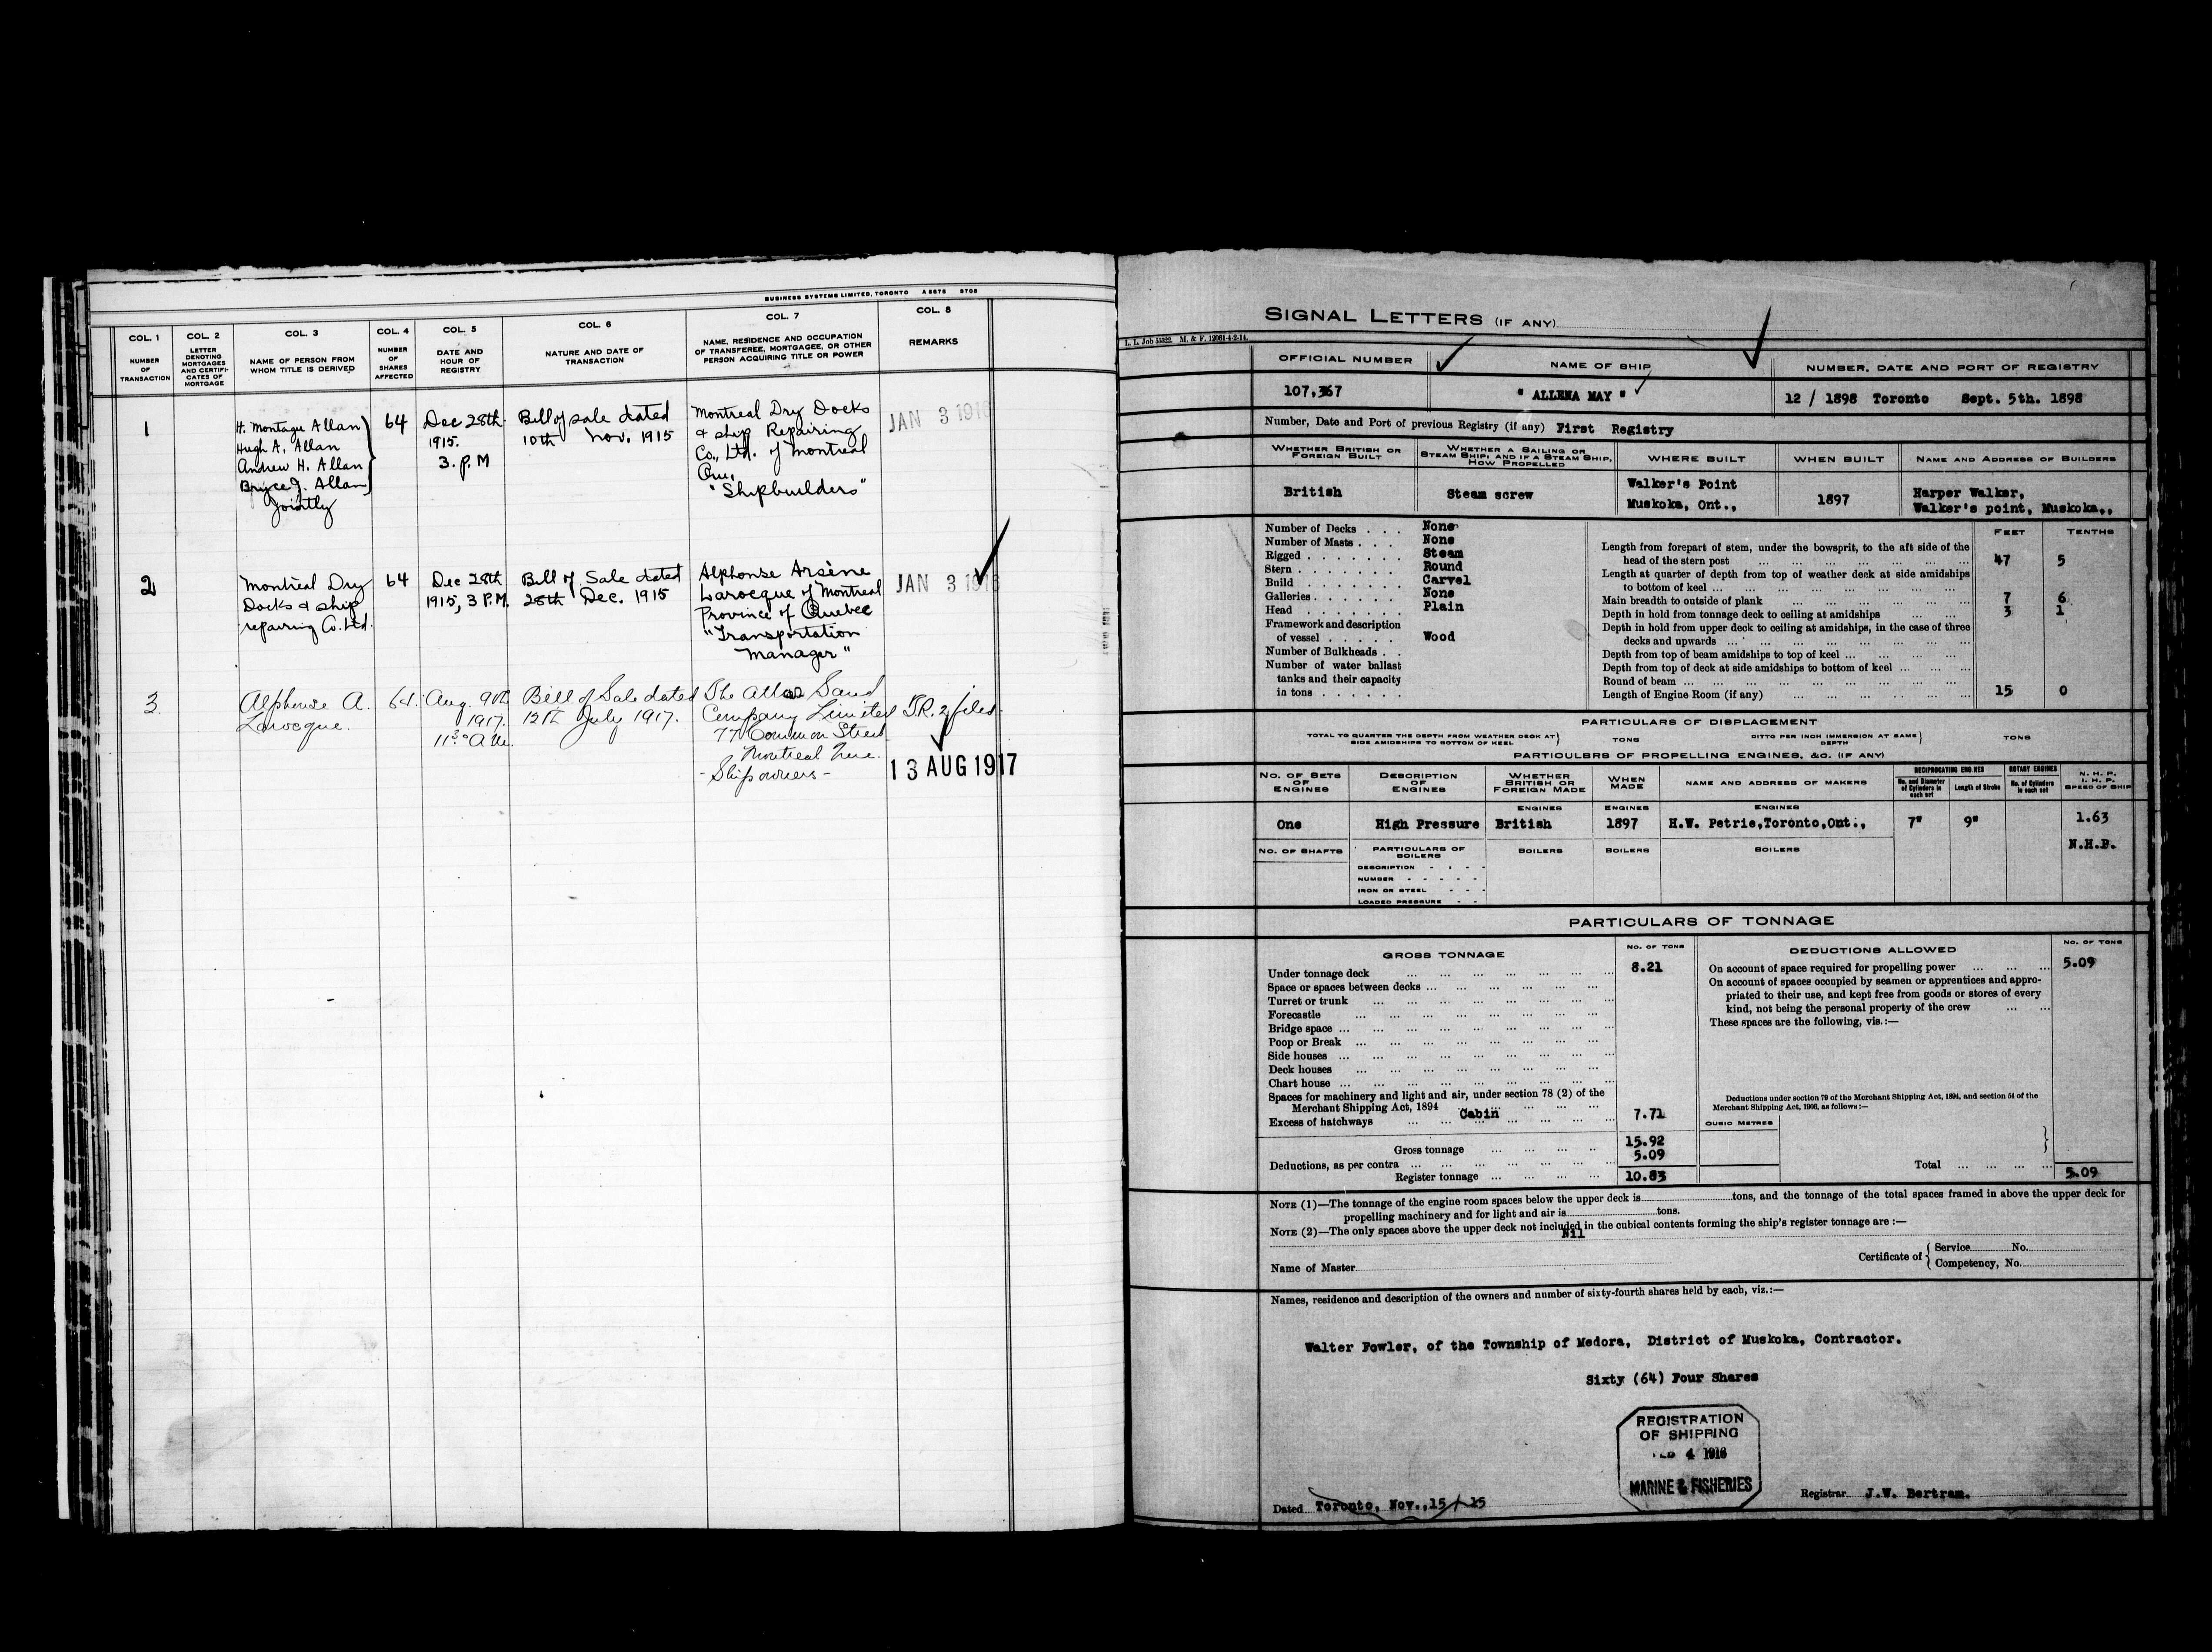 BUSINESS SYSTEMS LIMITED, TORONTO A 5675 5708
COL. 1 COL. 2 COL. 3 COL. 4 COL. 5 COL. 6 COL. 7 COL. 8
NUMBER OF TRANSACTION
LETTER DENOTING MORTGAGES AND CERTIFI- CATES OF MORTGAGE
NAME OF PERSON FROM WHOM TITLE IS DERIVED
NUMBER OF SHARES AFFECTED
DATE AND HOUR OF REGISTRY
NATURE AND DATE OF TRANSACTION
NAME, RESIDENCE AND OCCUPATION OF TRANSFEREE, MORTGAGEE, OR OTHER PERSON ACQUIRING TITLE OR POWER
REMARKS
1
H. Montagu Allan
Hugh A. Allan
Andrew H. Allan
Bryce J. Allan
Jointly
64
Dec 28th
1915.
3. P.M
Bill of sale dated
10th Nov. 1915
Montreal Dry Docks
& ship Repairing
Co., Ltd. of Montreal
Que,
"Shipbuilders"
JAN 3 1916
2
Montreal Dry
Docks & ship
repairing Co. Ltd.
64
Dec 28th
1915, 3 P.M.
Bill of Sale dated
28th Dec. 1915
Alphonse Arsène
Larocque of Montreal
Province of Quebec
"Transportation
manager"
JAN 3 1916
3
Alphonse A.
Larocque.
64.
Aug. 9th
1917.
11.30 A.M.
Bill of Sale dated
12th July 1917.
The Sand
Company Limited
77 Common Street
Montreal Que.
- Shipowners -
T.R. 2 filed
13 AUG 1917
SIGNAL LETTERS (IF ANY)
L. L. Job 55322. M. & F. 12081-4-2-14.
OFFICIAL NUMBER NAME OF SHIP NUMBER, DATE AND PORT OF REGISTRY
107,367 " ALLENA MAY " 12 / 1898 Toronto Sept. 5th. 1898
Number, Date and Port of previous Registry (if any) First Registry
WHETHER BRITISH OR FOREIGN BUILT
WHETHER A SAILING OR STEAM SHIP; AND IF A STEAM SHIP, HOW PROPELLED
WHERE BUILT
WHEN BUILT
NAME AND ADDRESS OF BUILDERS
British
Steam screw
Walker's Point
Muskoka, Ont.,
1897
Harper Walker,
Walker's point, Muskoka,,
Number of Decks . . . None
Number of Masts . . . None
Rigged . . . . . . . Steam
Stern . . . . . . . Round
Build . . . . . . . Carvel
Galleries . . . . . . None
Head . . . . . . . Plain
Framework and description
of vessel . . . . . Wood
Number of Bulkheads . .
Number of water ballast
tanks and their capacity
in tons . . . . . .
FEET TENTHS
Length from forepart of stem, under the bowsprit, to the aft side of the
head of the stern post 47 5
Length at quarter of depth from top of weather deck at side amidships
to bottom of keel
Main breadth to outside of plank 7 6
Depth in hold from tonnage deck to ceiling at amidships 3 1
Depth in hold from upper deck to ceiling at amidships, in the case of three
decks and upwards
Depth from top of beam amidships to top of keel
Depth from top of deck at side amidships to bottom of keel
Round of beam
Length of Engine Room (if any) 15 0
PARTICULARS OF DISPLACEMENT
TOTAL TO QUARTER THE DEPTH FROM WEATHER DECK AT SIDE AMIDSHIPS TO BOTTOM OF KEEL } TONS DITTO PER INCH IMMERSION AT SAME DEPTH } TONS
PARTICULBRS OF PROPELLING ENGINES, &C. (IF ANY)
NO. OF SETS OF ENGINES
DESCRIPTION OF ENGINES
WHETHER BRITISH OR FOREIGN MADE
WHEN MADE
NAME AND ADDRESS OF MAKERS
RECIPROCATING ENGINES
No. and Diameter of Cylinders in each set
Length of Stroke
ROTARY ENGINES
No. of Cylinders in each set
N. H. P.
I. H. P.
SPEED OF SHIP
ENGINES ENGINES ENGINES
One High Pressure British 1897 H.W. Petrie,Toronto,Ont., 7" 9" 1.63
N.H.P.
NO. OF SHAFTS PARTICULARS OF BOILERS BOILERS BOILERS BOILERS
DESCRIPTION
NUMBER
IRON OR STEEL
LOADED PRESSURE
PARTICULARS OF TONNAGE
GROSS TONNAGE NO. OF TONS
Under tonnage deck 8.21
Space or spaces between decks
Turret or trunk
Forecastle
Bridge space
Poop or Break
Side houses
Deck houses
Chart house
Spaces for machinery and light and air, under section 78 (2) of the
Merchant Shipping Act, 1894
Cabin 7.71
Excess of hatchways
Gross tonnage 15.92
Deductions, as per contra 5.09
Register tonnage 10.83
DEDUCTIONS ALLOWED NO. OF TONS
On account of space required for propelling power 5.09
On account of spaces occupied by seamen or apprentices and appro-
priated to their use, and kept free from goods or stores of every
kind, not being the personal property of the crew
These spaces are the following, viz.:—
Deductions under section 79 of the Merchant Shipping Act, 1894, and section 54 of the
Merchant Shipping Act, 1906, as follows:—
CUBIC METRES
Total 5.09
NOTE (1)—The tonnage of the engine room spaces below the upper deck is tons, and the tonnage of the total spaces framed in above the upper deck for
propelling machinery and for light and air is tons.
NOTE (2)—The only spaces above the upper deck not included in the cubical contents forming the ship's register tonnage are :—
Nil
Name of Master
Certificate of { Service No.
Competency, No.
Names, residence and description of the owners and number of sixty-fourth shares held by each, viz.:—
Walter Fowler, of the Township of Medora, District of Muskoka, Contractor.
Sixty (64) Four Shares
REGISTRATION
OF SHIPPING
FEB 4 1916
MARINE & FISHERIES
Dated Toronto, Nov.,15/15
Registrar J.W. Bertram.